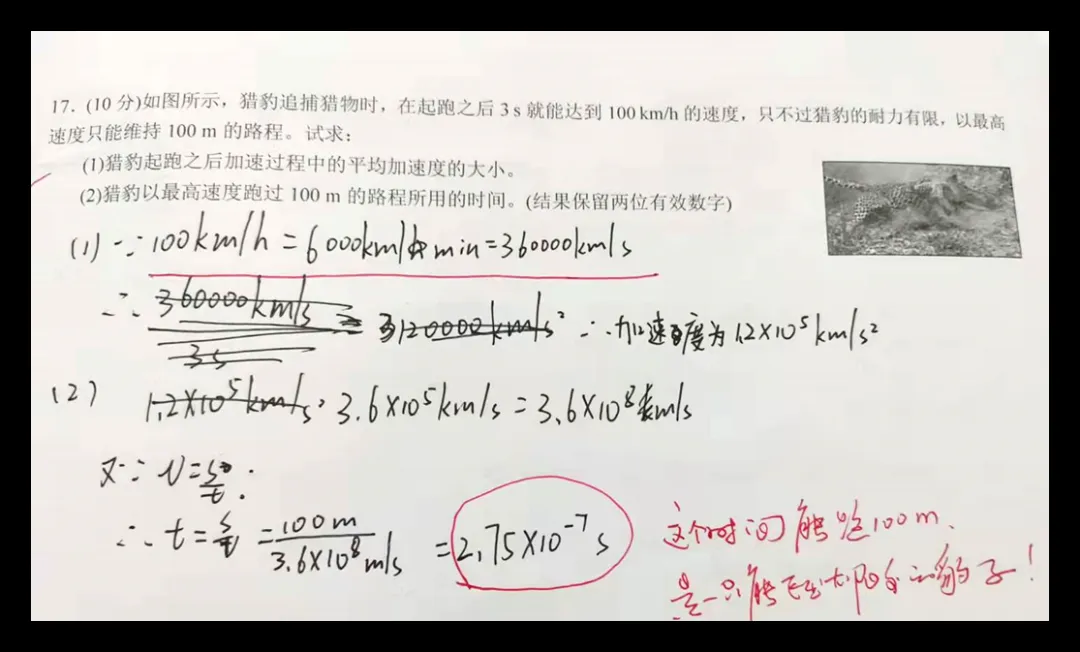 17. (10 分)如图所示，猎豹追捕猎物时，在起跑之后 3 s 就能达到 100 km/h 的速度，只不过猎豹的耐力有限，以最高
速度只能维持 100 m 的路程。试求：
(1)猎豹起跑之后加速过程中的平均加速度的大小。
(2)猎豹以最高速度跑过 100 m 的路程所用的时间。(结果保留两位有效数字)
(1) ∵100km/h = 6000km/min = 360000km/s
∴ 360000km/s / 3s = 3120000km/s² ∴加速度为 1.2×10⁵km/s²
(2) 1.2×10⁵km/s, 3.6×10⁵km/s = 3.6×10⁸m/s
又∵ V=s/t.
∴ t = s/v = 100m / 3.6×10⁸m/s = 2.75×10⁻⁷s
这个时间能跑100m、
是一只能飞到太阳系的豹子！